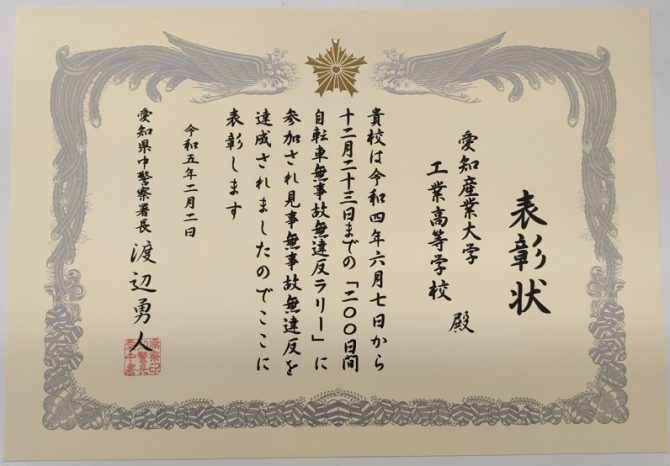 表彰状
愛知産業大学
工業高等学校 殿
貴校は令和四年六月七日から
十二月二十三日までの「二〇〇日間
自転車無事故無違反ラリー」に
参加され見事無事故無違反を
達成されましたのでここに
表彰します
令和五年二月二日
愛知県中警察署長 渡辺勇人